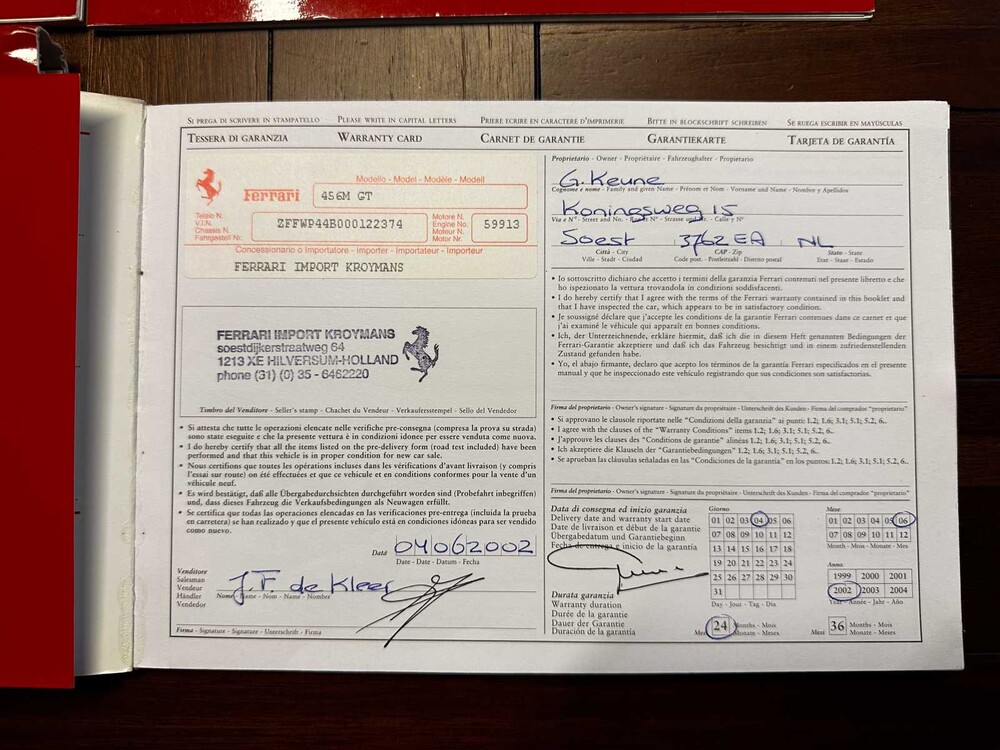 SI PREGA DI SCRIVERE IN STAMPATELLO PLEASE WRITE IN CAPITAL LETTERS PRIERE ECRIRE EN CARACTERE D'IMPRIMERIE BITTE IN BLOCKSCHRIFT SCHREIBEN SE RUEGA ESCRIBIR EN MAYÚSCULAS
TESSERA DI GARANZIA WARRANTY CARD CARNET DE GARANTIE GARANTIEKARTE TARJETA DE GARANTÍA
Modello - Model - Modèle - Modell
Ferrari 456M GT
Telaio N.
V.I.N.
Chassis N.
Fahrgestell Nr.
ZFFWP44B000122374
Motore N.
Engine No.
Moteur N.
Motor Nr.
59913
Concessionario o Importatore - Importer - Importateur - Importeur
FERRARI IMPORT KROYMANS
FERRARI IMPORT KROYMANS
soestdijkerstraatweg 64
1213 XE HILVERSUM-HOLLAND
phone (31) (0) 35 - 6462220
Timbro del Venditore - Seller's stamp - Chachet du Vendeur - Verkaufersstempel - Sello del Vendedor
• Si attesta che tutte le operazioni elencate nelle verifiche pre-consegna (compresa la prova su strada)
sono state eseguite e che la presente vettura è in condizioni idonee per essere venduta come nuova.
• I do hereby certify that all the items listed on the pre-delivery form (road test included) have been
performed and that this vehicle is in proper condition for new car sale.
• Nous certifions que toutes les opérations incluses dans les vérifications d'avant livraison (y compris
l'essai sur route) on été effectuées et que ce véhicule est en conditions conformes pour la vente d'un
véhicule neuf.
• Es wird bestätigt, daß alle Übergabedurchsichten durchgeführt worden sind (Probefahrt inbegriffen)
und, dass dieses Fahrzeug die Verkaufsbedingungen als Neuwagen erfüllt.
• Se certifica que todas las operaciones elencadas en las verificaciones pre-entrega (incluida la prueba
en carretera) se han realizado y que el presente vehículo está en condiciones idóneas para ser vendido
como nuevo.
Data 04062002
Date - Date - Datum - Fecha
Venditore
Salesman
Vendeur
Händler
Vendedor
J.T. de Kleer
Nome - Name - Nom - Name - Nombre
Firma - Signature - Signature - Unterschrift - Firma
Proprietario - Owner - Propriétaire - Fahrzeughalter - Propietario
G. Keune
Cognome e nome - Family and given Name - Prénom et Nom - Vorname und Name - Nombre y Apellidos
Koningsweg 15
Via e N° - Street and No. - Rue et N° - Strasse und Nr. - Calle y N°
Soest 3762 EA NL
Città - City CAP - Zip Stato - State
Ville - Stadt - Ciudad Code post. - Postleitzahl - Distrito postal Etat - Staat - Estado
• Io sottoscritto dichiaro che accetto i termini della garanzia Ferrari contenuti nel presente libretto e che
ho ispezionato la vettura trovandola in condizioni soddisfacenti.
• I do hereby certify that I agree with the terms of the Ferrari warranty contained in this booklet and
that I have inspected the car, which appears to be in satisfactory condition.
• Je soussigné déclare que j'accepte les conditions de la garantie Ferrari contenues dans ce carnet et que
j'ai examiné le véhicule qui apparaît en bonnes conditions.
• Ich, der Unterzeichnende, erkläre hiermit, daß ich die in diesem Heft genannten Bedingungen der
Ferrari-Garantie akzeptiere und daß ich das Fahrzeug besichtigt und in einem zufriedenstellenden
Zustand gefunden habe.
• Yo, el abajo firmante, declaro que acepto los términos de la garantía Ferrari especificados en el presente
manual y que he inspeccionado este vehículo registrando que sus condiciones son satisfactorias.
Firma del proprietario - Owner's signature - Signature du propriétaire - Unterschrift des Kunden - Firma del comprador "propietario"
• Si approvano le clausole riportate nelle "Condizioni della garanzia" ai punti: 1.2; 1.6; 3.1; 5.1; 5.2, 6..
• I agree with the clauses of the "Warranty Conditions" items 1.2; 1.6; 3.1; 5.1; 5.2, 6..
• J'approuve les clauses des "Conditions de garantie" alinéas 1.2; 1.6; 3.1; 5.1; 5.2, 6..
• Ich akzeptiere die Klauseln der "Garantiebedingungen" 1.2; 1.6; 3.1; 5.1; 5.2, 6..
• Se aprueban las cláusulas señaladas en las "Condiciones de la garantía" en los puntos: 1.2; 1.6; 3.1; 5.1; 5.2, 6..
Firma del proprietario - Owner's signature - Signature du propriétaire - Unterschrift des Kunden - Firma del comprador "propietario"
Data di consegna ed inizio garanzia
Delivery date and warranty start date
Date de livraison et début de la garantie
Übergabedatum und Garantiebeginn
Fecha de entrega e inicio de la garantía
Giorno
01 02 03 04 05 06
07 08 09 10 11 12
13 14 15 16 17 18
19 20 21 22 23 24
25 26 27 28 29 30
31
Day - Jour - Tag - Dia
Mese
01 02 03 04 05 06
07 08 09 10 11 12
Month - Mois - Monat - Mes
Anno
1999 2000 2001
2002 2003 2004
Year - Année - Jahr - Año
Durata garanzia
Warranty duration
Durée de la garantie
Dauer der Garantie
Duración de la garantía
Mesi 24 Months - Mois
Monate - Meses
Mesi 36 Months - Mois
Monate - Meses